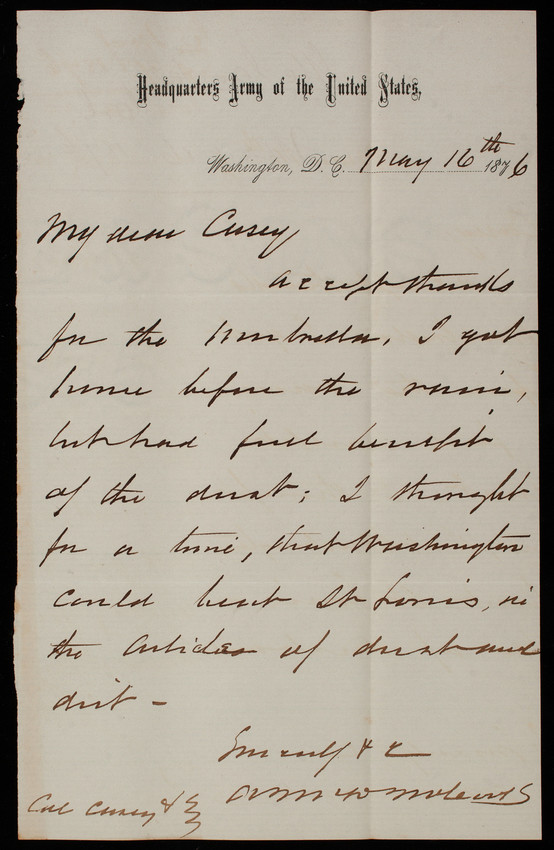 Headquarters Army of the United States,
Washington, D.C. May 16th 1876
My dear Casey
accept thanks
for the umbrella. I got
home before the rain,
but had full benefit
of the dust; I thought
for a time, that Washington
could beat St Louis, in
the articles of dust and
dirt -
&c
Col Casey &